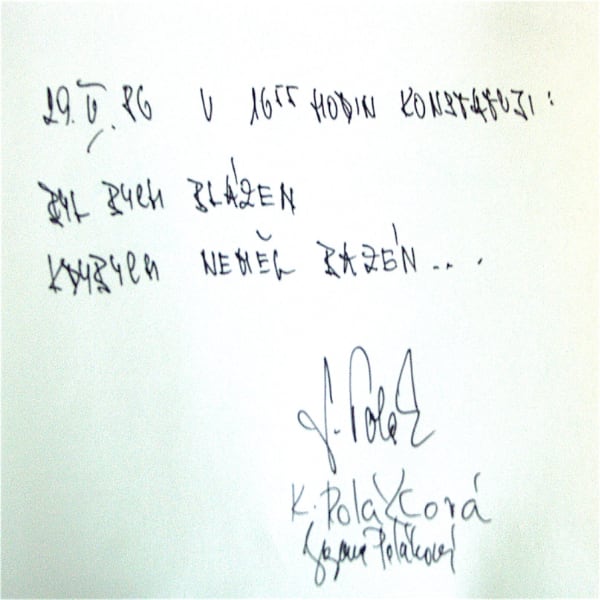 29. V. 86 V 16⁵⁵ HODIN KONSTATUJI:
BYL BYCH BLÁZEN
KDYBYCH NEMĚL BAZÉN...
K. Polákcová
Poláková